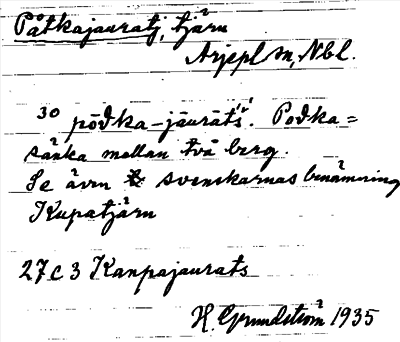 Påtkajauratj, tjärn
Arjepl sn, Nbl.
30 pōđka-jāurāt's'. Pođka=
sänka mellan två berg.
Se även svenskarnas benämning
Kupatjärn
27 C 3 Kanpajaurats
H. Grundström 1935